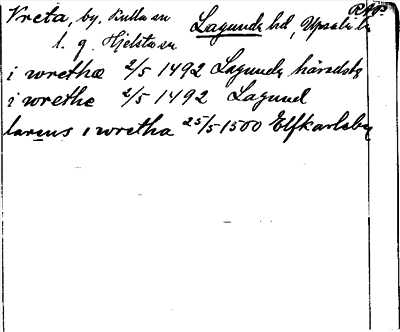 Vreta, by, Kulla sn Lagunda hd, Upsala l.
l. g. Hjelsta sn
i wrethæ 2/5 1492 Lagunda häradstg
i wrethe 2/5 1492 Lagund
larens i wretha 25/5 1500 Elfkarleby